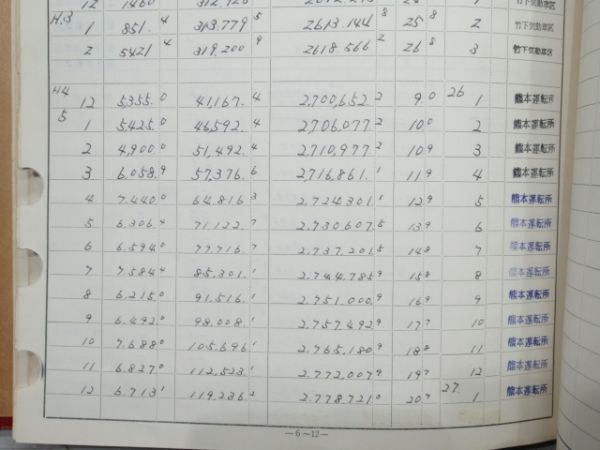 12 1460 312.928 竹下気動車区
H.3 1 851.4 313.779 5 2613.144 8 25 8 2 竹下気動車区
2 5421 4 319.200 9 2618.566 2 26 8 3 竹下気動車区
H4 12 5355.0 41,167.4 2,700,652.2 9.0 26 1 熊本運転所
5 1 5,425.0 46,592.4 2,706,077.2 10 0 2 熊本運転所
2 4,900.0 51,492.4 2,710,977.2 10 9 3 熊本運転所
3 6,058.9 57,376.6 2,716,861.1 11 9 4 熊本運転所
4 7.440.0 64,816 3 2.724.301.1 12.9 5 熊本運転所
5 6.306.4 71.122.7 2.730,607.5 13.9 6 熊本運転所
6 6.594.0 77.716.7 2,737,201.5 14 8 7 熊本運転所
7 7.584.4 85.301.1 2,744,785.9 15 8 8 熊本運転所
8 6.215.0 91.516.1 2,751.000.9 16 9 9 熊本運転所
9 6.492.0 98.008.1 2,757.492.9 17 7 10 熊本運転所
10 7.688.0 105.696.1 2,765,180.9 18 8 11 熊本運転所
11 6.827.0 112.523.1 2.772.007.9 19 7 12 熊本運転所
12 6.713.1 119.236.2 2.778.721.0 20.7 27. 1 熊本運転所
—6—12—